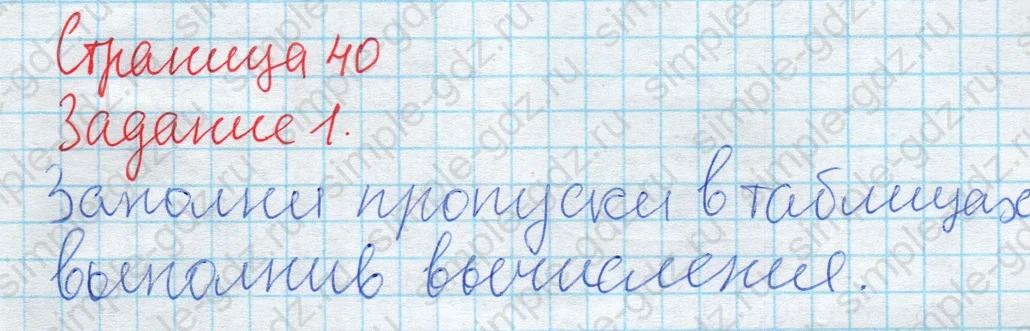 Страница 40
Задание 1.
Заполни пропуски в таблицах
выполнив вычисления.